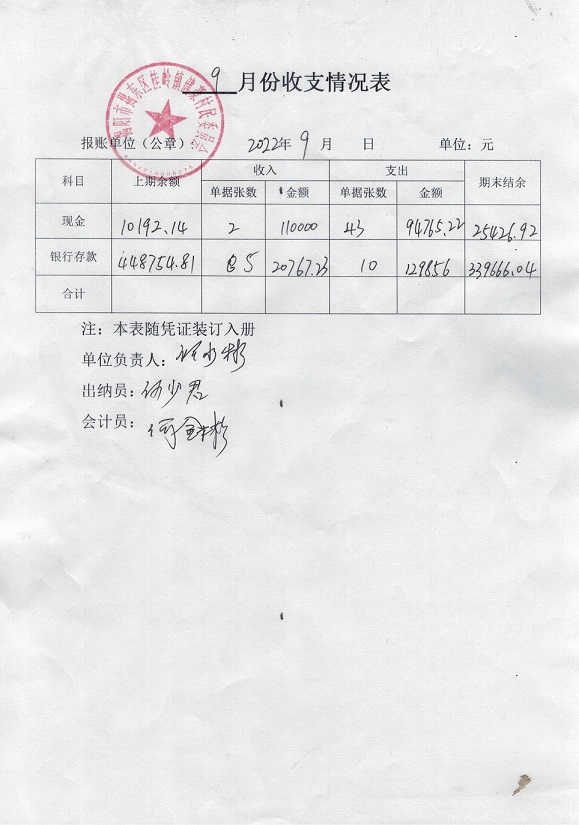 9 月份收支情况表
报账单位（公章） 2022年 9 月 日 单位：元
科目 上期余额 收入 支出 期末结余
单据张数 金额 单据张数 金额
现金 10192.14 2 110000 43 94765.22 25426.92
银行存款 448754.81 5 20767.23 10 129856 339666.04
合计
注：本表随凭证装订入册
单位负责人：
出纳员：
会计员：